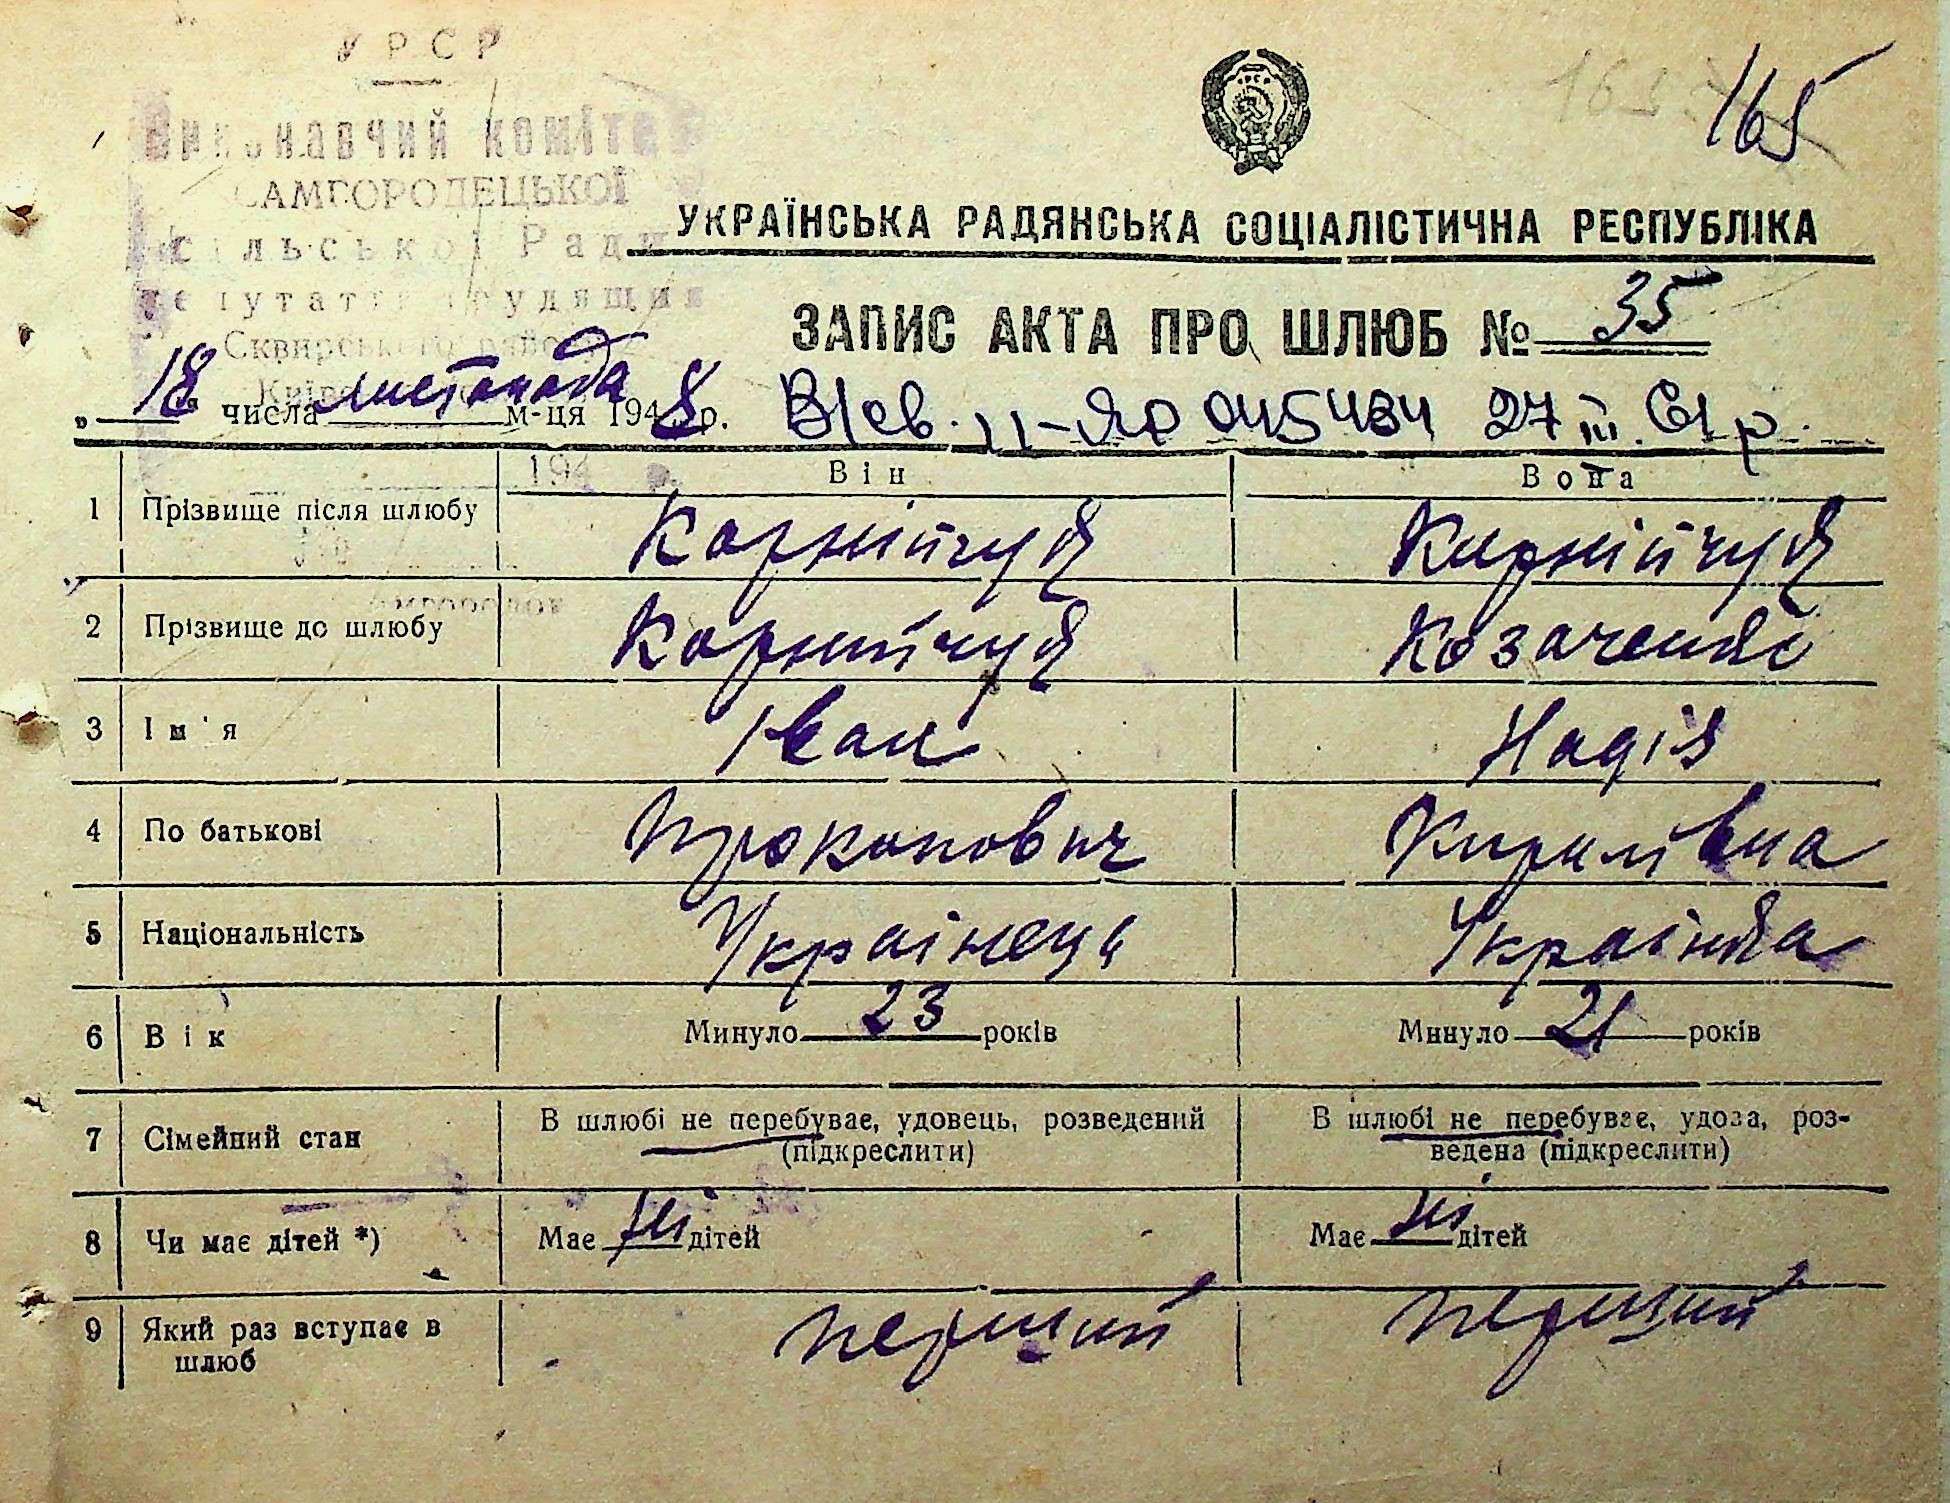 УРСР
165
Виконавчий комітет
САМГОРОДЕЦЬКОЇ
сільської Ради
депутатів трудящих
Сквирського району
УКРАЇНСЬКА РАДЯНСЬКА СОЦІАЛІСТИЧНА РЕСПУБЛІКА
ЗАПИС АКТА ПРО ШЛЮБ № 35
„18" числа листопада м-ця 1948 р. В/св. II-ЯР 045434 27 III. 61 р.
194 р.
Він Вона
1 Прізвище після шлюбу Корнійчук Корнійчук
2 Прізвище до шлюбу Корнійчук Козаченко
3 Ім'я Іван Надія
4 По батькові Прокопович Кирилівна
5 Національність Українець Українка
6 Вік Минуло 23 років Минуло 21 років
7 Сімейний стан В шлюбі не перебуває, удовець, розведений (підкреслити) В шлюбі не перебуває, удова, роз-
ведена (підкреслити)
8 Чи має дітей *) Має ні дітей Має ні дітей
9 Який раз вступає в шлюб перший перший